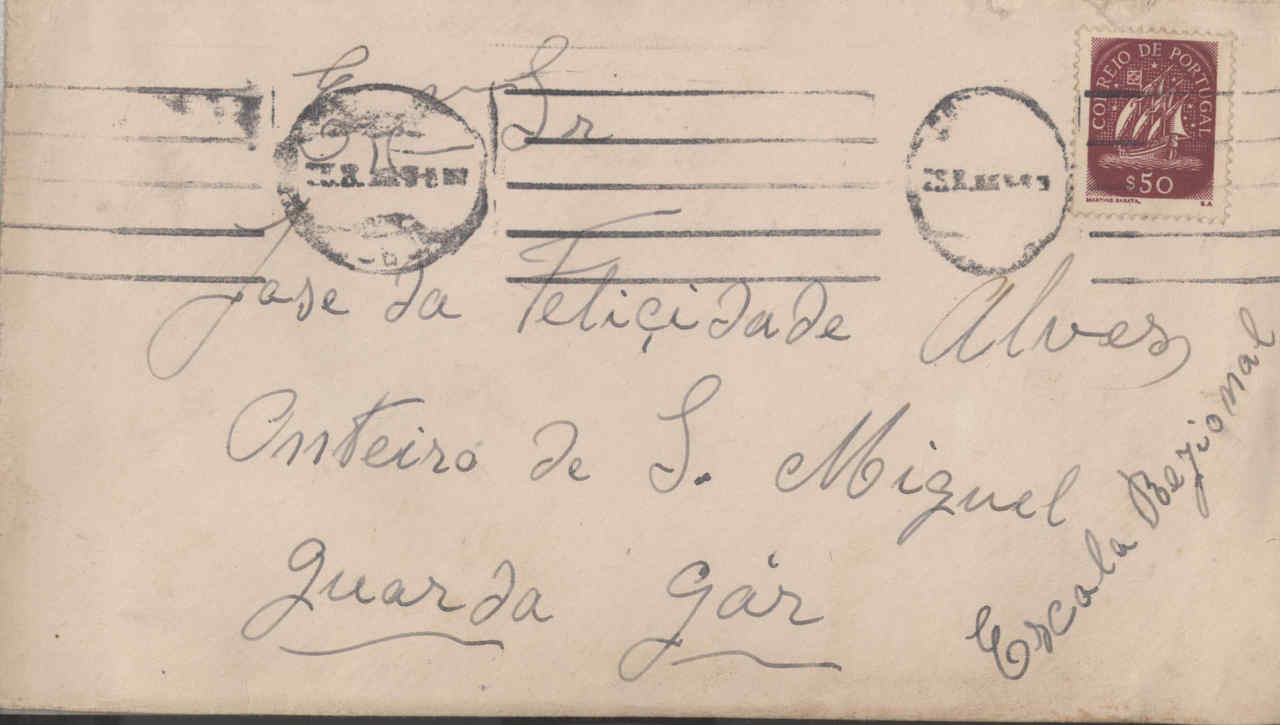 Exmo Sr
Jose da Feliçidade Alves
Onteiro de S. Miguel
Guarda Gár
Escala Rezional
CORREIO DE PORTUGAL
$50
MARTINS BARATA.